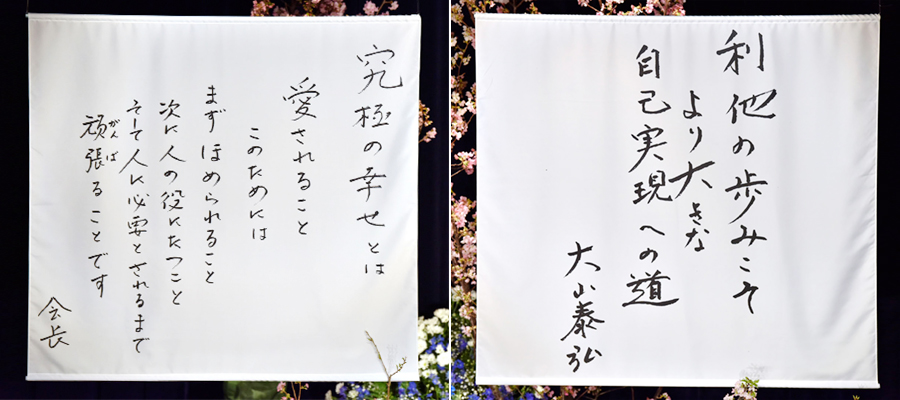 究極の幸せとは
愛されること
このためには
まずほめられること
次に人の役にたつこと
そして人に必要とされるまで
がんば
頑張ることです
会長
利他の歩みこそ
より大きな
自己実現への道
大山泰弘